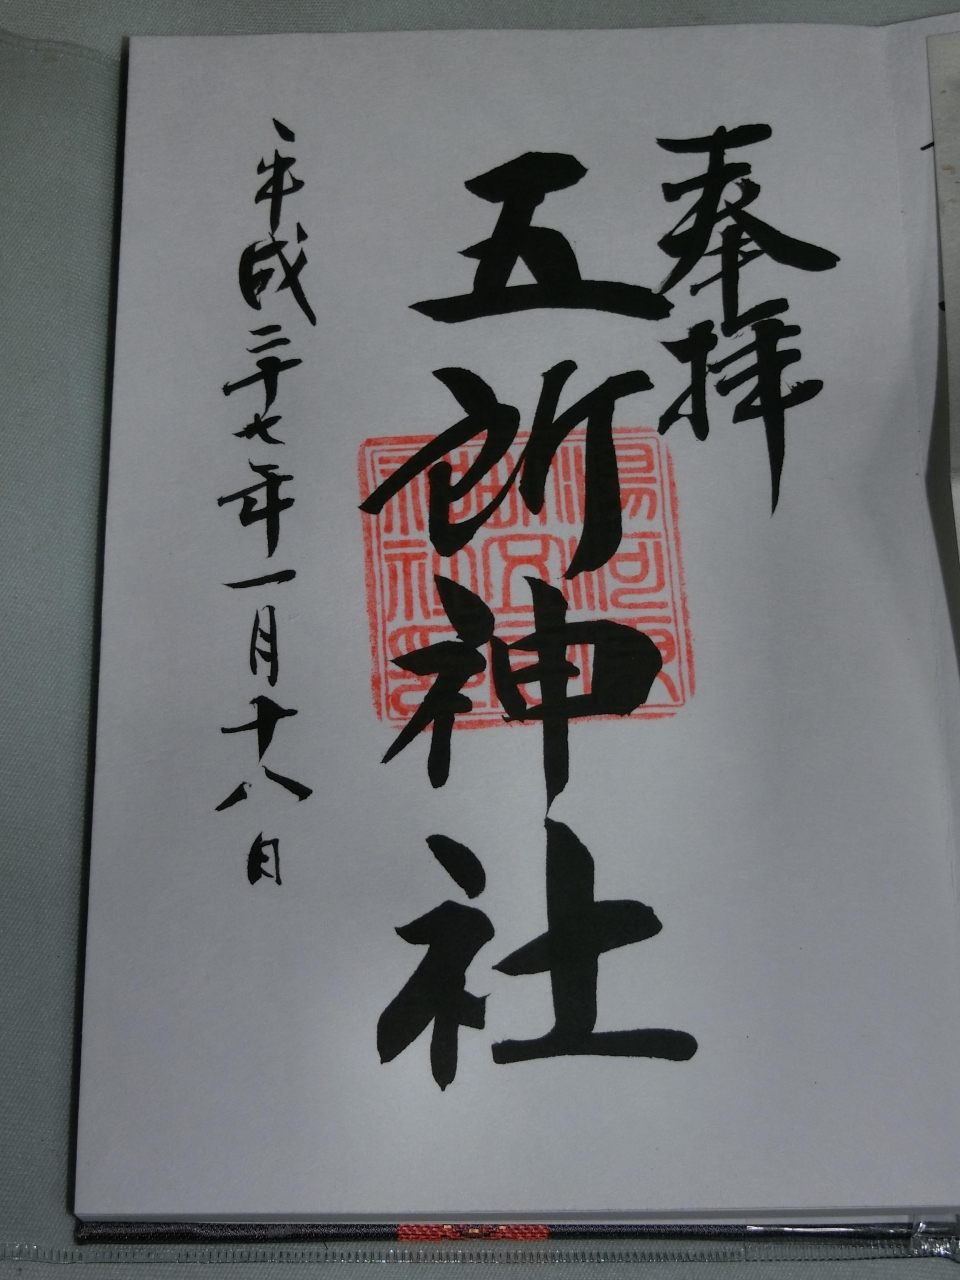 奉拝
五所神社
平成二十七年一月十八日